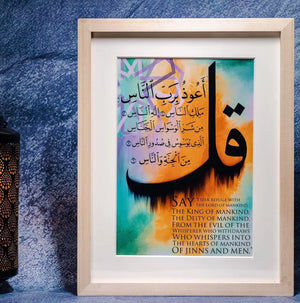 قل
أعوذ برب الناس
ملك الناس إله الناس
من شر الوسواس الخناس
الذي يوسوس في صدور الناس
من الجنة والناس
SAY "I SEEK REFUGE WITH
THE LORD OF MANKIND,
THE KING OF MANKIND,
THE DEITY OF MANKIND,
FROM THE EVIL OF THE
WHISPERER WHO WITHDRAWS
WHO WHISPERS INTO
THE HEARTS OF MANKIND
OF JINNS AND MEN."